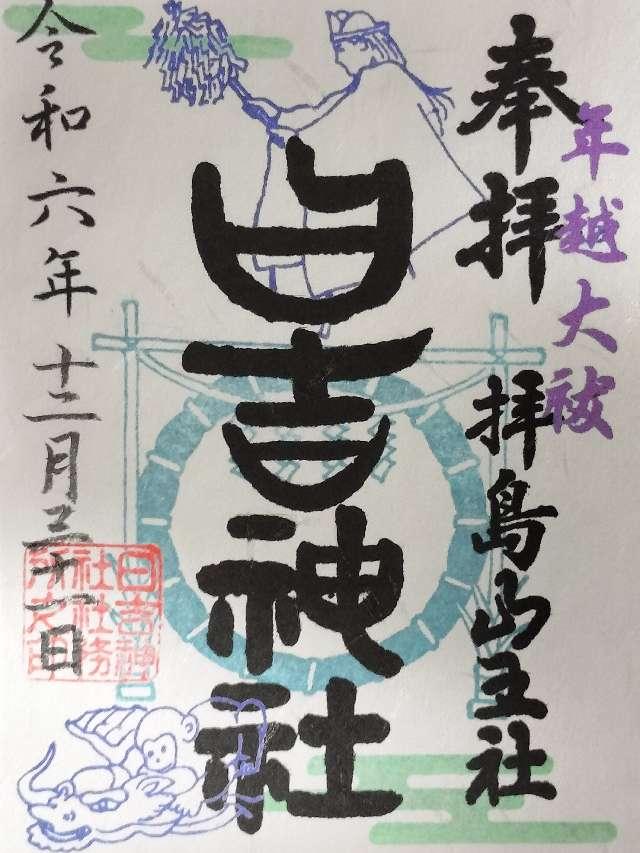 年越大祓
奉拝
拝島山王社
日吉神社
令和六年十二月三十一日
日吉神
社社務
所之印